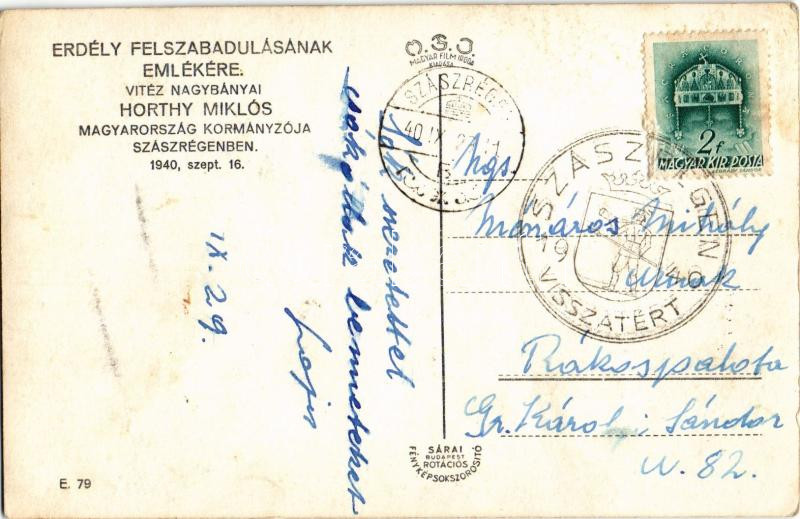 ERDÉLY FELSZABADULÁSÁNAK
EMLÉKÉRE.
VITÉZ NAGYBÁNYAI
HORTHY MIKLÓS
MAGYARORSZÁG KORMÁNYZÓJA
SZÁSZRÉGENBEN.
1940, szept. 16.
O.G.J.
MAGYAR FILM IRODA
KIADÁSA
SZÁSZRÉGEN
40 IX
2f
MAGYAR KIR. POSTA
SZÁSZRÉGEN
19 40
VISSZATÉRT
Sok szeretettel
csókollak benneteket
Lajos
IX. 29.
Ngs
Mónáros Mihály
Urnak
Rákospalota
Gr. Károlyi Sándor
u. 82.
SÁRAI
BUDAPEST
ROTÁCIÓS
FÉNYKÉPSOKSZOROSITÓ
E. 79